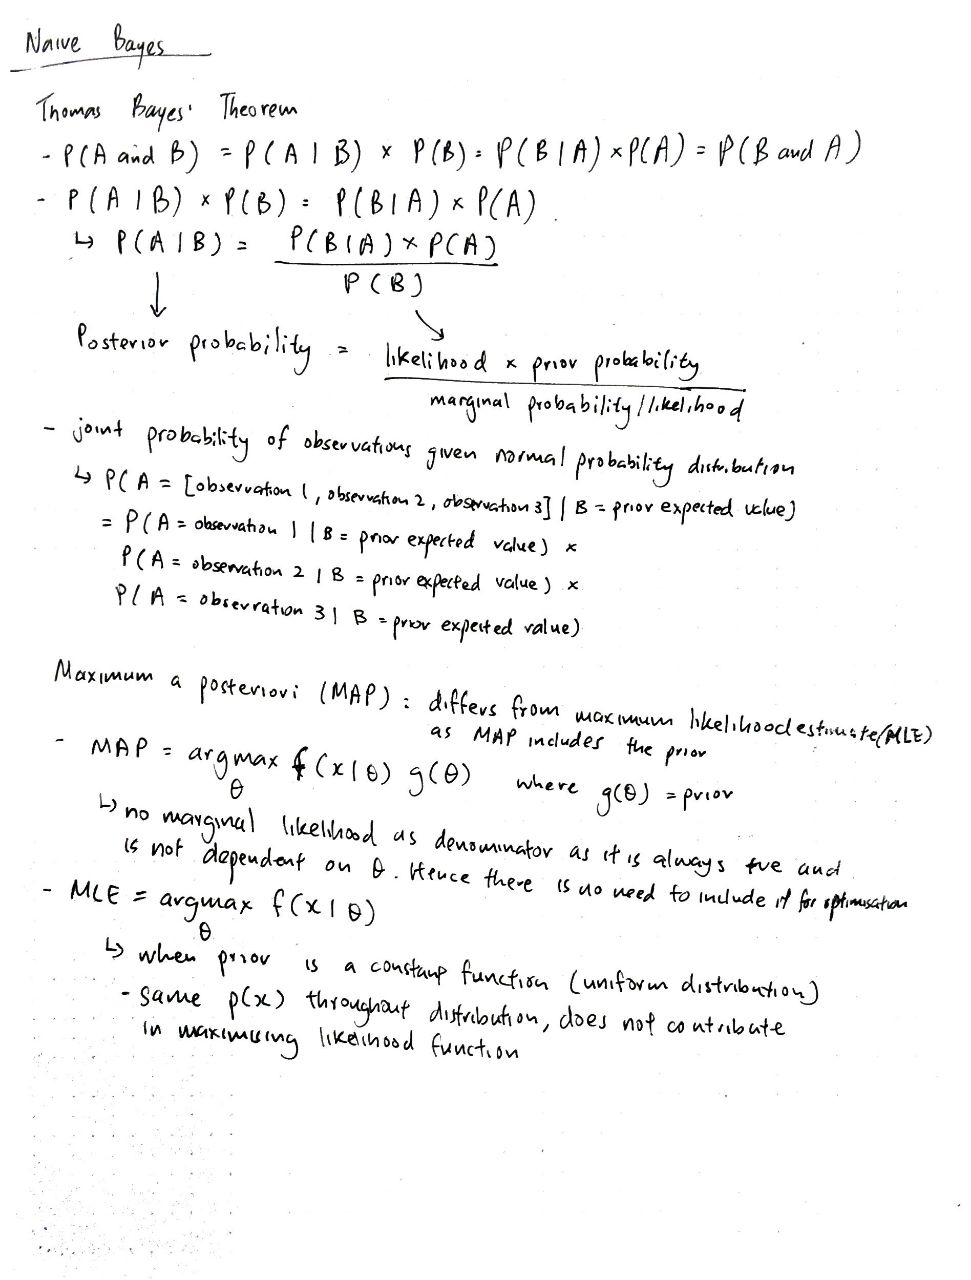 Naive Bayes
Thomas Bayes' Theorem
- P(A and B) = P(A | B) × P(B) = P(B | A) × P(A) = P(B and A)
- P(A | B) × P(B) = P(B | A) × P(A)
↳ P(A | B) = P(B | A) × P(A)
P(B)
Posterior probability = likelihood × prior probability
marginal probability//likelihood
- joint probability of observations given normal probability distribution
↳ P(A = [observation 1, observation 2, observation 3] | B = prior expected value)
= P(A = observation 1 | B = prior expected value) ×
P(A = observation 2 | B = prior expected value) ×
P(A = observation 3 | B = prior expected value)
Maximum a posteriori (MAP) : differs from maximum likelihood estimate (MLE)
as MAP includes the prior
- MAP = argmax f(x | θ) g(θ) where g(θ) = prior
θ
↳ no marginal likelihood as denominator as it is always +ve and
is not dependent on θ. Hence there is no need to include it for optimisation
- MLE = argmax f(x | θ)
θ
↳ when prior is a constant function (uniform distribution)
- same p(x) throughout distribution, does not contribute
in maximising likelihood function